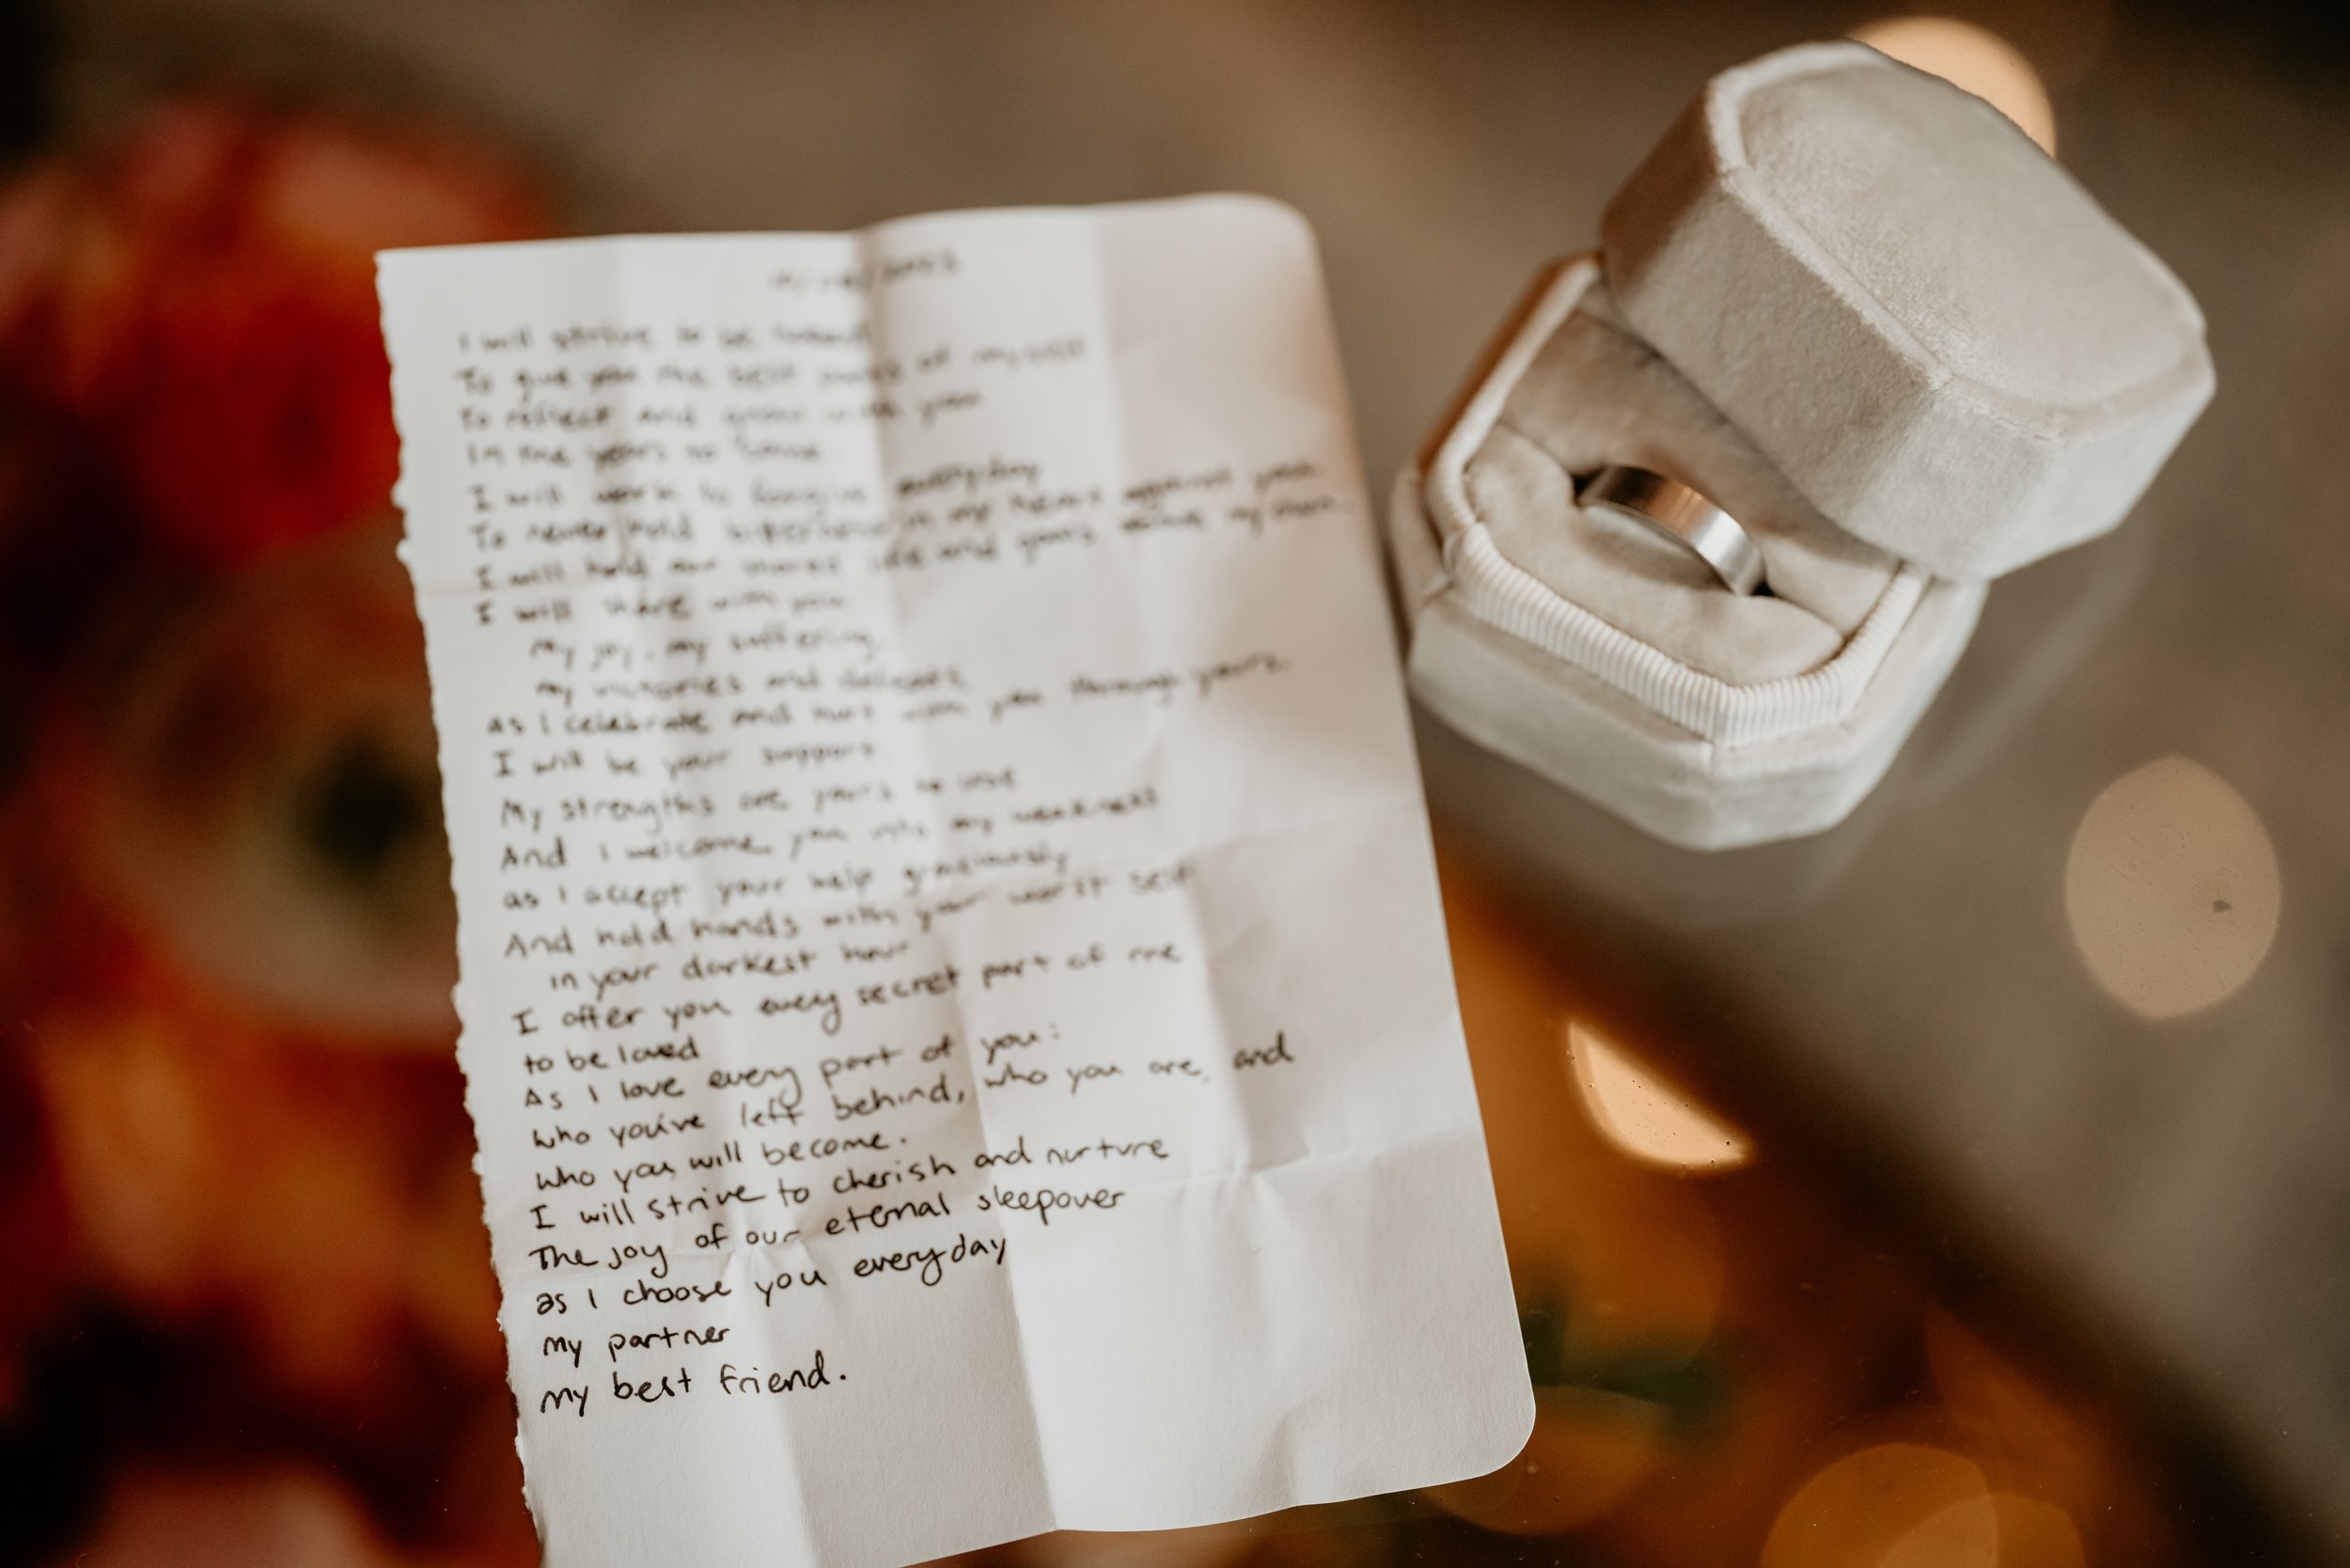 I will strive to be
To give you the best of myself
To reflect and grow with you
In the years to come
I will work to forgive everyday
To never hold in my heart against you
I will hold our shared life and goals above my own.
I will share with you
my joy, my suffering,
my victories and defeats,
As I celebrate and hurt with you through yours.
I will be your support.
My strengths are yours to use
And I welcome you into my weakness
as I accept your help graciously
And hold hands with your worst self
in your darkest hour
I offer you every secret part of me
to be loved
As I love every part of you:
who you've left behind, who you are, and
who you will become.
I will strive to cherish and nurture
The joy of our eternal sleepover
as I choose you everyday
my partner
my best friend.